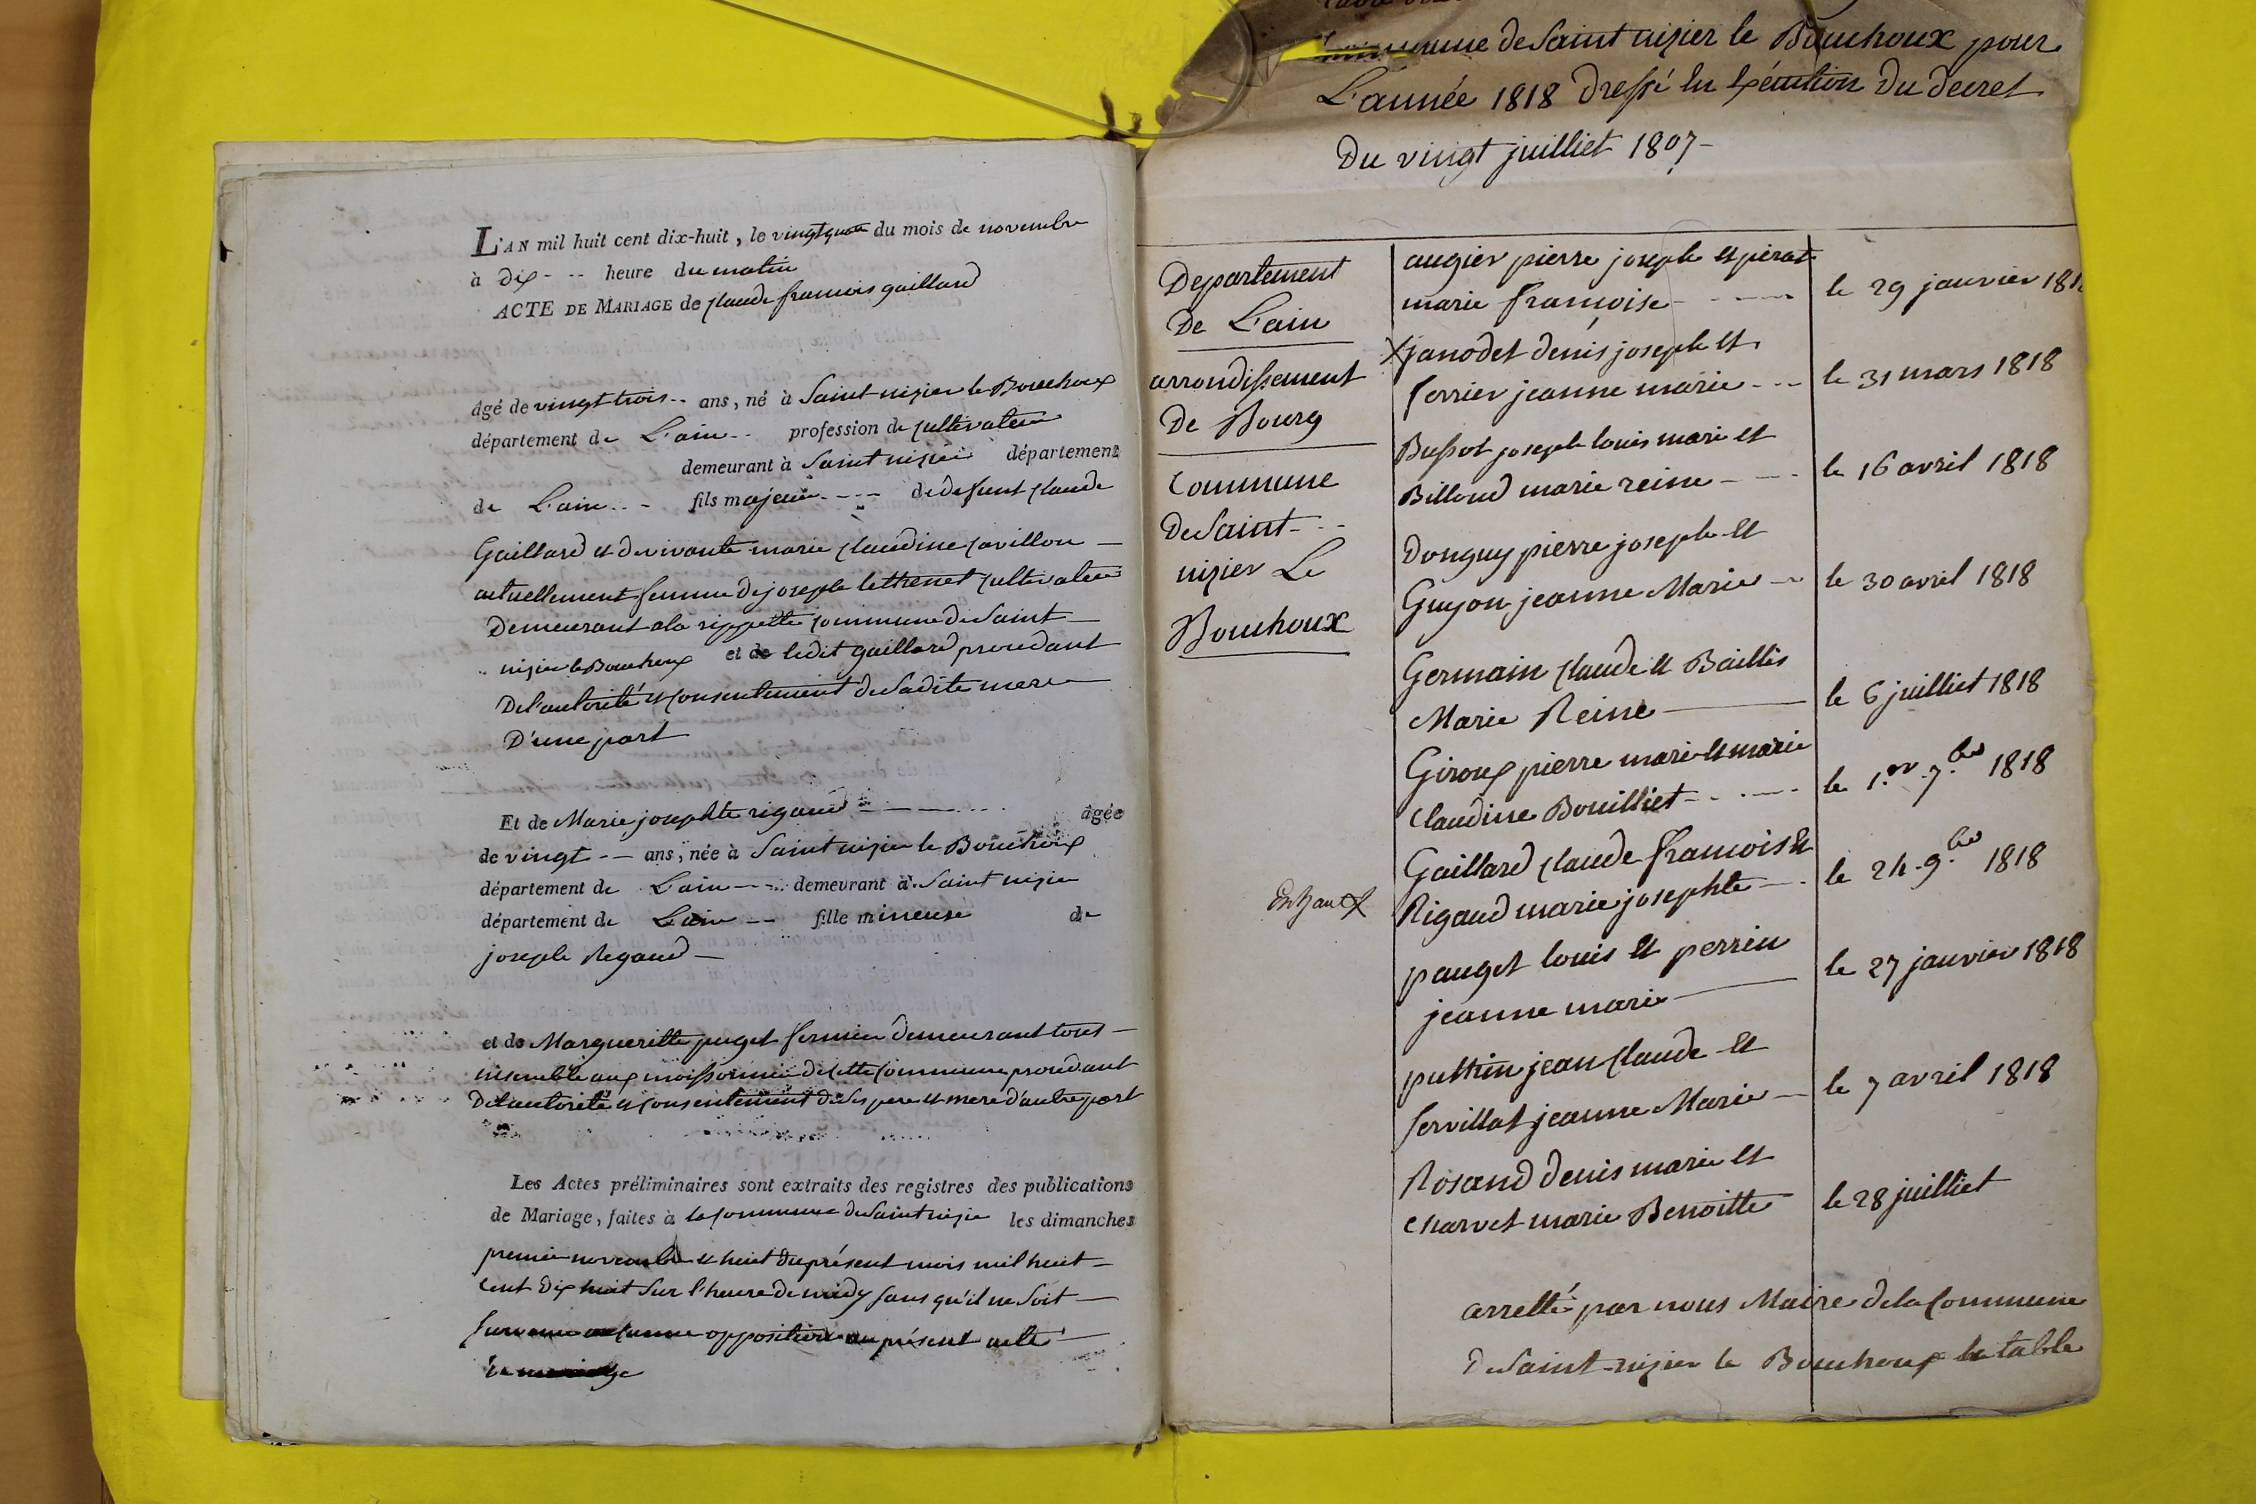 L'AN mil huit cent dix-huit, le vingtquatre du mois de novembre
à dix - - - heure du matin
ACTE DE MARIAGE de claude francois gaillard
âgé de vingt trois - - ans, né à Saint nizier le Bouchoux
département de L'ain - - profession de cultivateur
demeurant à Saint nizier département
de L'ain - - - fils majeur - - - de defunt claude
Gaillard et de vivante marie claudine cavillon —
actuellement femme de joseph cultivateur
Demeurant a la rippette commune de Saint —
nizier le Bouchoux et de ledit gaillard procedant
De l'autorité et consentement de Sadite mere —
D'une part
Et de Marie josephte rigaud — — — âgée
de vingt - — ans, née à Saint nizier le Bouchoux
département de L'ain — - - demeurant à Saint nizier
département de L'ain — - fille mineure de
joseph Regaud —
et de Margueritte puget fermier demeurant tous —
ensemble aux de cette commune procedant
De l'autorité et consentement de Ses pere et mere d'autre part
Les Actes préliminaires sont extraits des registres des publications
de Mariage, faites à la commune de Saint nizier les dimanches
premier novembre et huit du présent mois mil huit —
cent dix huit Sur l'heure de midy sans qu'il ne Soit —
Survenue aucunne opposition au présent acte —
de mariage
commune de Saint nizier le Bouchoux pour
L'année 1818 dressé en Exécution du decret
Du vingt juilliet 1807 -
Departement
De L'ain
arrondissement
De Bourg
Commune
De Saint - - -
nizier Le
Bouchoux
augier pierre joseph et perat
marie francoise - - - — le 29 janvier 181
X janodet denis joseph et
ferrier jeanne marie - - - le 31 mars 1818
Bussot joseph louis marie et
Billoud marie reine - — - le 16 avril 1818
Donguy pierre joseph et
Guyon jeanne Marie — le 30 avril 1818
Germain claude et Baillis
Marie Reine — le 6 juilliet 1818
Giroux pierre marie et marie
Claudine Bouilliet - - — le 1.er 7.bre 1818
Gaillard claude francois et
Rigaud marie josephte — - le 24. 9.bre 1818
pauget louis et perrin
jeanne marie — le 27 janvier 1818
puthin jean claude et
servillat jeanne Marie — le 7 avril 1818
Rosand denis marie et
charvet marie Benoitte le 28 juilliet
arretté par nous Maire de la Commune
De Saint-nizier le Bouchoux la table